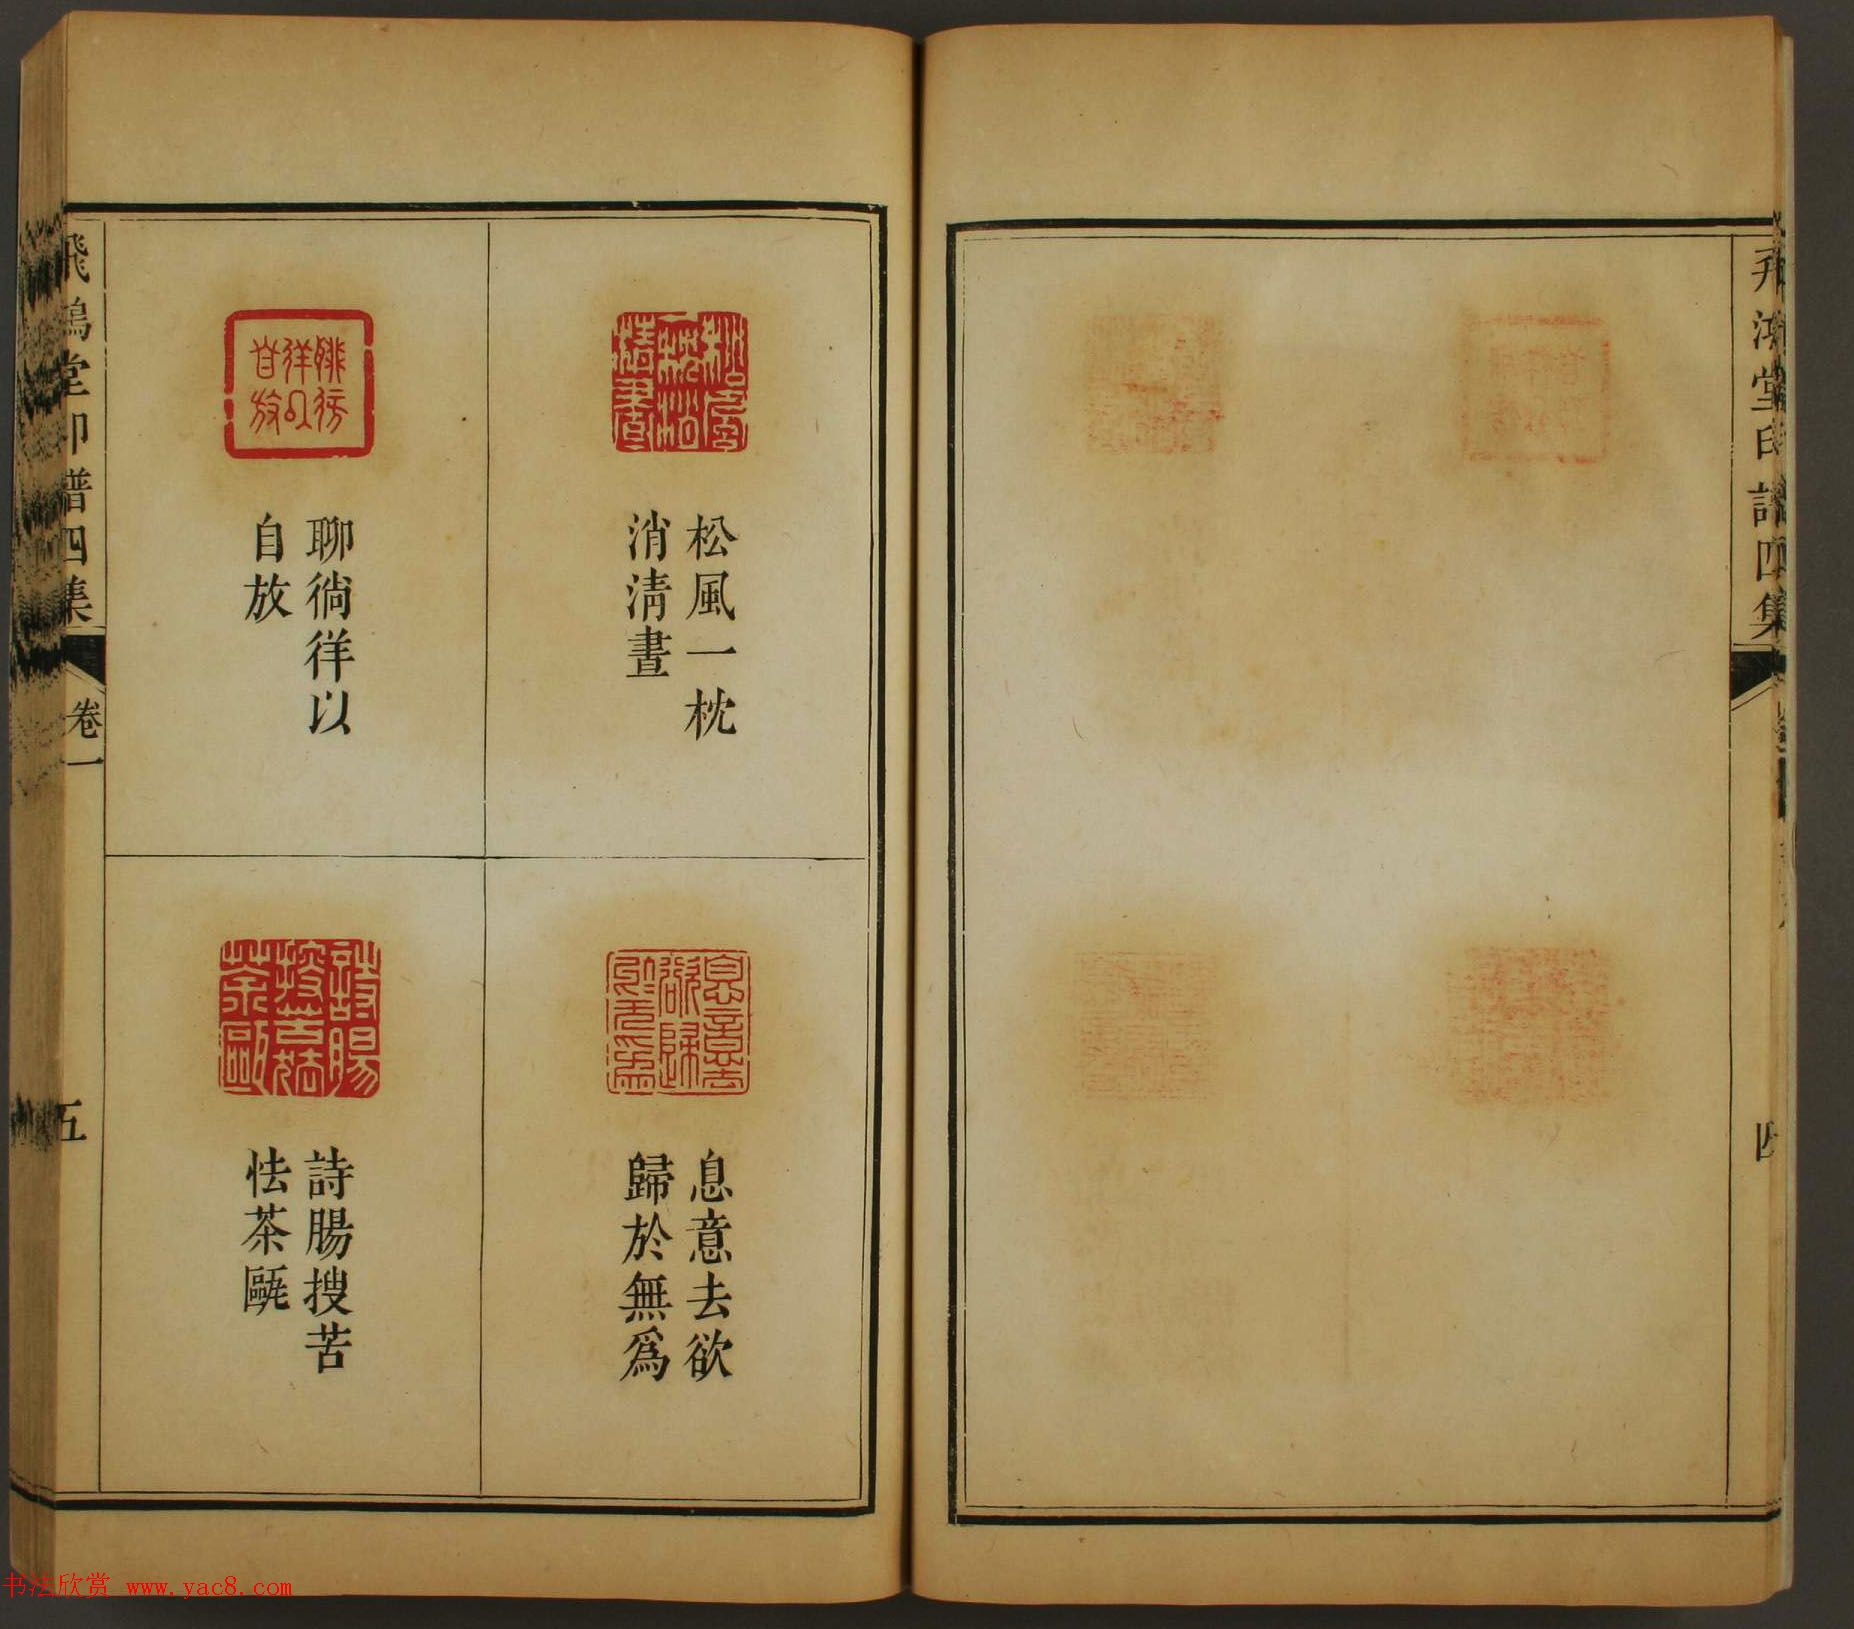 飛鴻堂印譜四集
四
松風一枕
消清晝
聊徜徉以
自放
息意去欲
歸於無爲
詩腸搜苦
怯茶甌
飛鴻堂印譜四集
卷一
五
书法欣赏 www.yac8.com